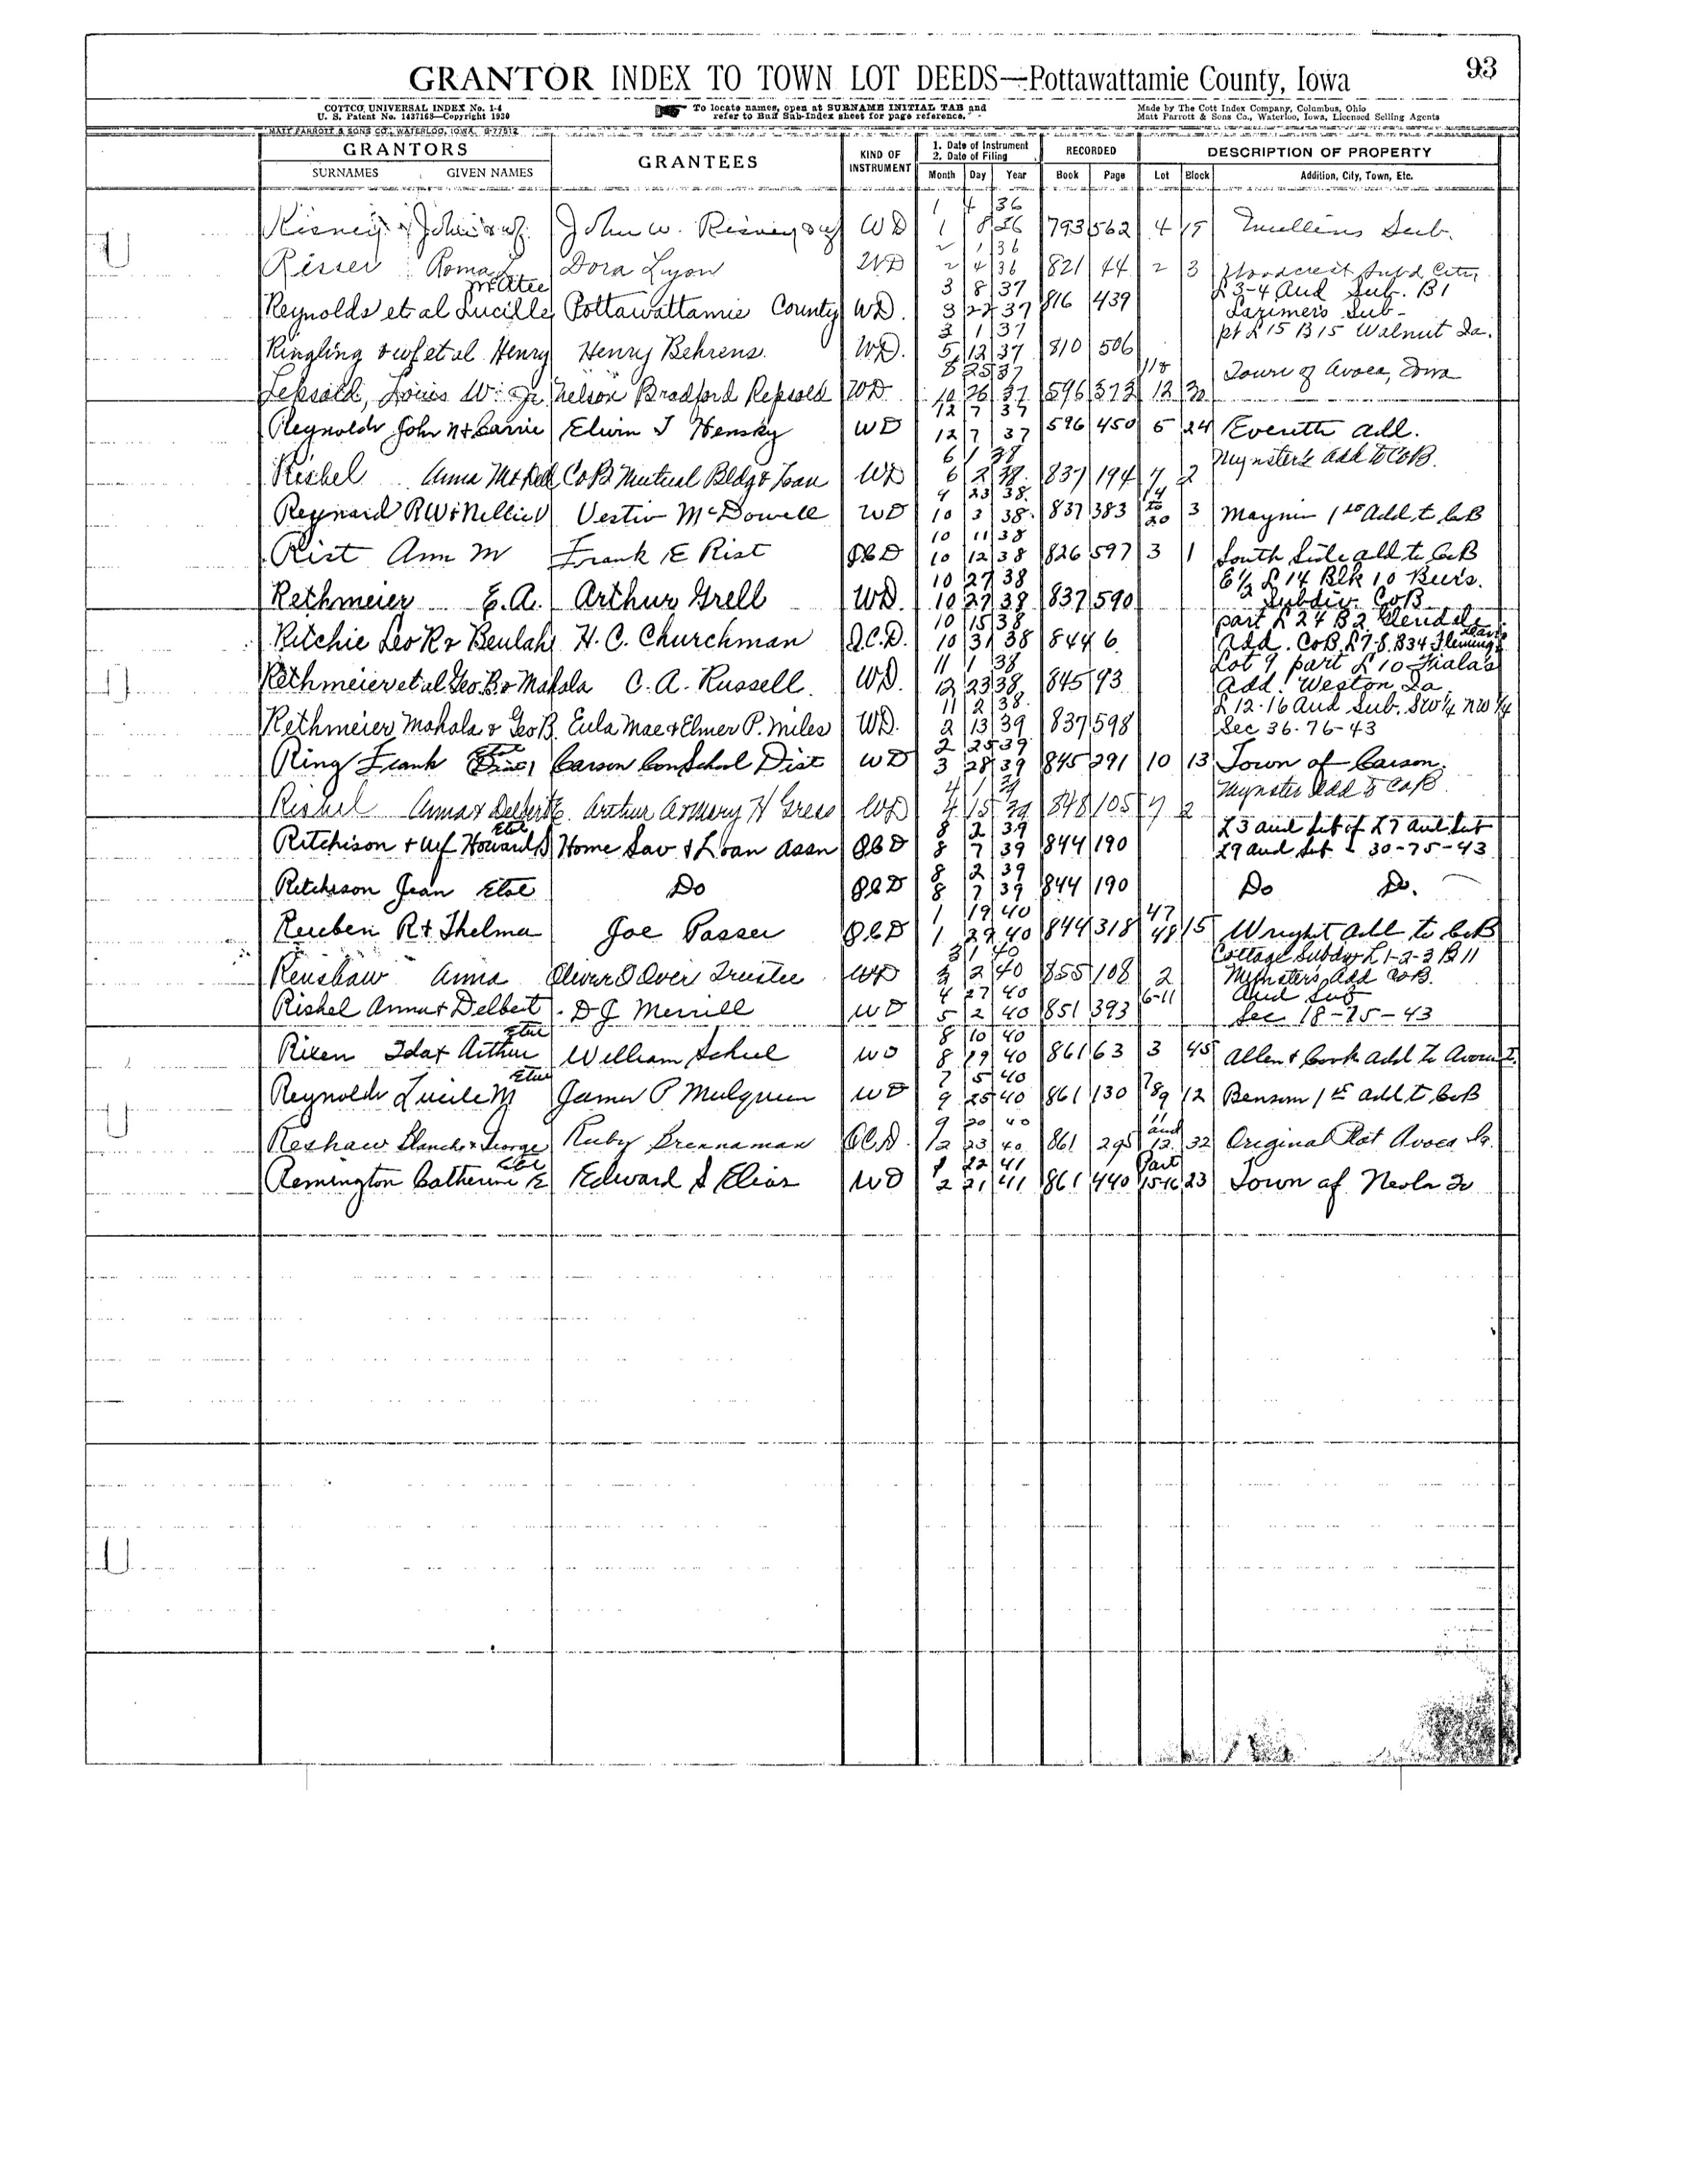 93
GRANTOR INDEX TO TOWN LOT DEEDS—Pottawattamie County, Iowa
COTTCO UNIVERSAL INDEX No. 1-4
U. S. Patent No. 1437168—Copyright 1930
To locate names, open at SURNAME INITIAL TAB and
refer to Buff Sub-Index sheet for page reference.
Made by The Cott Index Company, Columbus, Ohio
Matt Parrott & Sons Co., Waterloo, Iowa, Licensed Selling Agents
MATT PARROTT & SONS CO., WATERLOO, IOWA
GRANTORS GRANTEES KIND OF INSTRUMENT 1. Date of Instrument 2. Date of Filing RECORDED DESCRIPTION OF PROPERTY
SURNAMES GIVEN NAMES Month Day Year Book Page Lot Block Addition, City, Town, Etc.
1 4 36
Risney John & wf. John W. Risney & wf WD 1 8 36 793 562 4 15 Mullins Sub.
2 1 36
Risser Roma L. Dora Lyon WD 2 4 36 821 44 2 3 Woodcrest Subd City
McAtee 3 8 37 L 3-4 Aud Sub. B1
Reynolds et al Lucille Pottawattamie County WD. 3 22 37 816 439 Larimers Sub-
3 1 37 pt L 15 B15 Walnut Ia.
Ringling & wf et al Henry Henry Behrens. WD. 5 12 37 810 506
8 25 37 Town of Avoca, Iowa
Repsold, Louis W. Jr Nelson Bradford Repsold WD 10 26 37 596 373 12
12 7 37
Reynolds John N & Carrie Elwin J Hensky WD 12 7 37 596 450 5 24 Everetts Add.
6 1 38 Mynster's Add to CoB.
Rishel Anna M & Del CoB Mutual Bldg & Loan WD 6 2 38. 837 194 7 2
9 23 38. 14
Reynard RW & Nellie V Vestir McDowell WD 10 3 38. 837 383 to 20 3 Maynes 1st Add to CoB
10 11 38
Rist Ann M Frank E Rist QCD 10 12 38 826 597 3 1 South Side add to CoB
10 27 38 E 1/2 L 14 Blk 10 Beers.
Rethmeier E.A. Arthur Grell WD. 10 27 38 837 590 Subdiv. CoB
10 15 38 part L 24 B2 Glendale
Ritchie Leo R & Beulah H. C. Churchman Q.C.D. 10 31 38 844 6 Add. CoB L 7-8 B34 Fleming & Davis
11 1 38 Lot 9 part L 10 Fialas
Rethmeier et al Geo. B & Mahala C. A. Russell. WD. 12 23 38 845 93 Add. Weston Ia.
11 2 38. L 12-16 Aud Sub. SW¼ NW¼
Rethmeier Mahala & Geo B. Eula Mae & Elmer P. Miles WD. 2 13 39 837 598 Sec 36-76-43
2 25 39
Ring Frank Etal Carson Con School Dist WD 3 28 39 845 291 10 13 Town of Carson.
4 1 39 Mynster Add to CoB
Rishel Anna & Delbert E. Arthur A & Mary H Gress WD 4 15 39 848 105 7 2
Etal 8 2 39 L 3 aud Sub of L 7 aud Sub
Ritchison & wf Howard S Home Sav & Loan Assn QCD 8 7 39 844 190 L 9 aud Sub - 30-75-43
8 2 39
Ritchison Jean Etal Do QCD 8 7 39 844 190 Do Do.
1 19 40 47
Reuben R & Thelma Joe Passer QCD 1 29 40 844 318 48 15 Wright Add to CoB
3 1 40 Cottage Subdiv L 1-2-3 B 11
Renshaw Anna Oliver D Over Trustee WD 2 40 855 108 2 Mynster's Add CoB.
4 27 40 6-11 Aud Sub
Rishel Anna & Delbert D J Merrill WD 5 2 40 851 393 Sec 18-75-43
Etal 8 10 40
Rixen Ida & Arthur William Schul WD 8 19 40 861 63 3 45 Allen & Cook add to Avoca I.
Etal 7 5 40 7
Reynolds Lucile M James P Mulqueen WD 9 25 40 861 130 89 12 Benson 1st add to CoB
9 20 40 11 and
Reshaw Blanche & George Ruby Brennaman QCD. 12 23 40 861 295 12 32 Original Plat Avoca Ia.
Etal 1 22 41 Part
Remington Catherine E Edward S Elias WD 2 21 41 861 440 15-16 23 Town of Neola Io